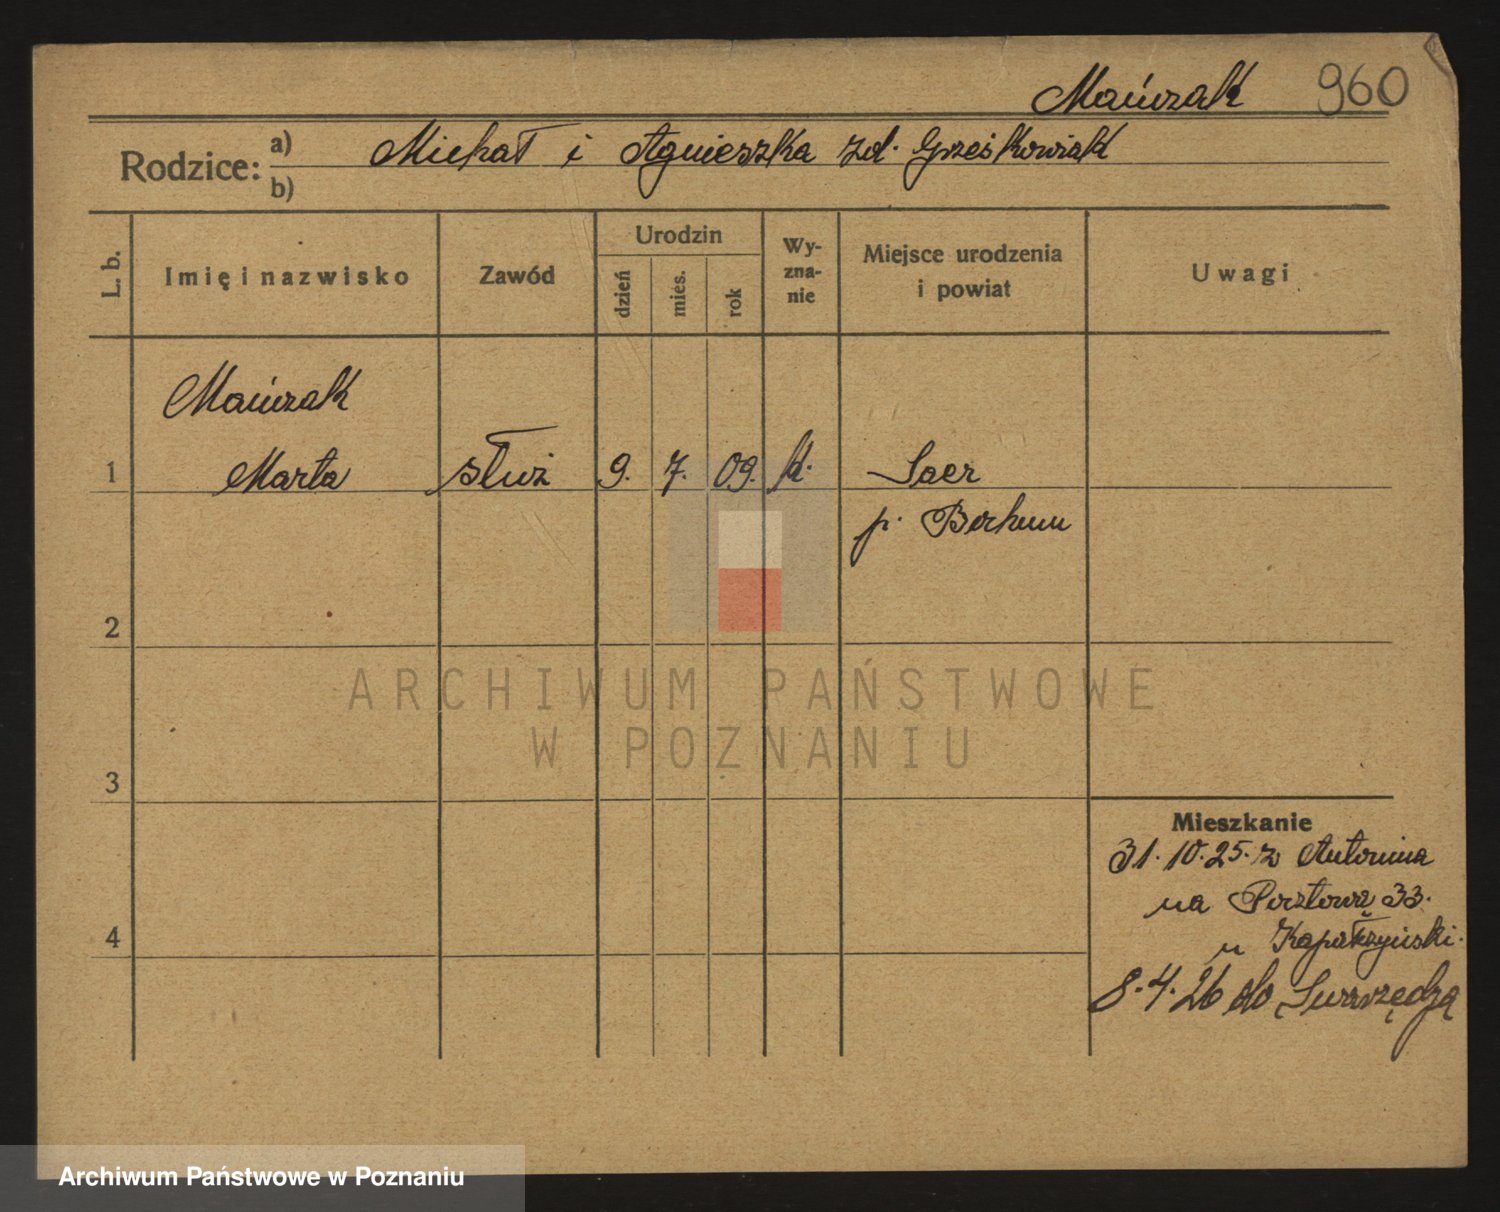 Mańczak 960
Rodzice: a) Michał i Agnieszka zd. Grześkowiak
b)
L. b.
Imię i nazwisko
Zawód
Urodzin
dzień
mies.
rok
Wy-
zna-
nie
Miejsce urodzenia
i powiat
Uwagi
Mańczak
1 Marta służ 9. 7. 09. k.
p. Bochum
2
3
4
Mieszkanie
31.10.25. z Antonina
na Pocztową 33.
u
8.4.26 do Swarzędza
ARCHIWUM PAŃSTWOWE
W POZNANIU
Archiwum Państwowe w Poznaniu